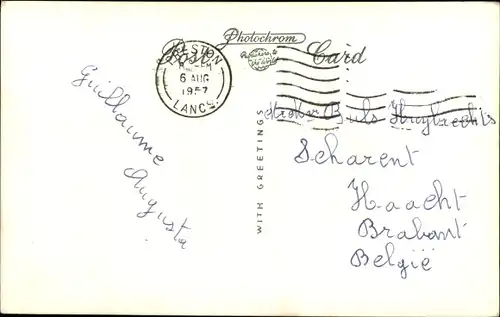 Photochrom
Post Card
PRESTON
6 AUG
1957
LANCS.
Guillaume
Augusta
WITH GREETINGS
Buls Huybrechts
Scharent
Haacht
Brabant
België